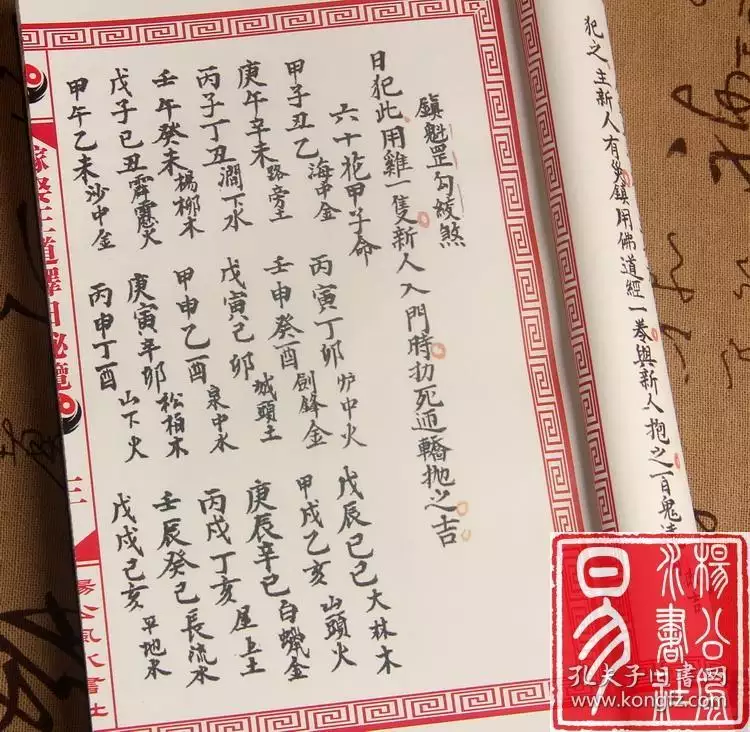 犯之主新人有災鎮用佛道經一卷與新人抱之百鬼
鎮魁罡勾絞煞
日犯此用雞一隻新人入門時扨死逥轎抛之吉
六十花甲子命
甲子丑乙海中金 丙寅丁卯炉中火 戊辰巳己大林木
庚午辛未路旁土 壬申癸酉劍鋒金 甲戌乙亥山頭火
丙子丁丑澗下水 戊寅己卯城頭土 庚辰辛巳白蠟金
壬午癸未楊柳木 甲申乙酉泉中水 丙戌丁亥屋上土
戊子己丑霹靂火 庚寅辛卯松柏木 壬辰癸巳長流水
甲午乙未沙中金 丙申丁酉山下火 戊戌己亥平地木
嫁娶王道擇日秘覽
三
楊公風水書社
楊公風
水書社
易
孔夫子旧书网
www.kongfz.com